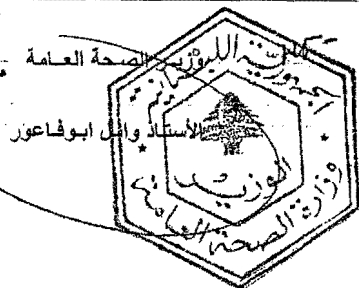 وزير الصحة العامة
الأستاذ وائل ابوفاعور
الجمهورية اللبنانية
الوزير
وزارة الصحة العامة